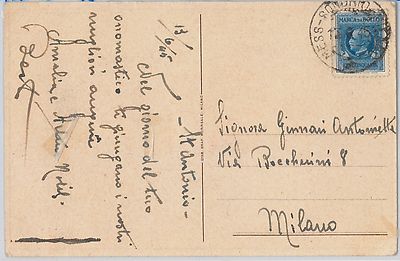 13/6/45
St Antonio -
Nel giorno del tuo
onomastico ti giungano i nostri
migliori auguri
Amalia e
MARCA DA BOLLO
MESS-
Signora Gennari Antonietta
Via Boccherini 8
Milano